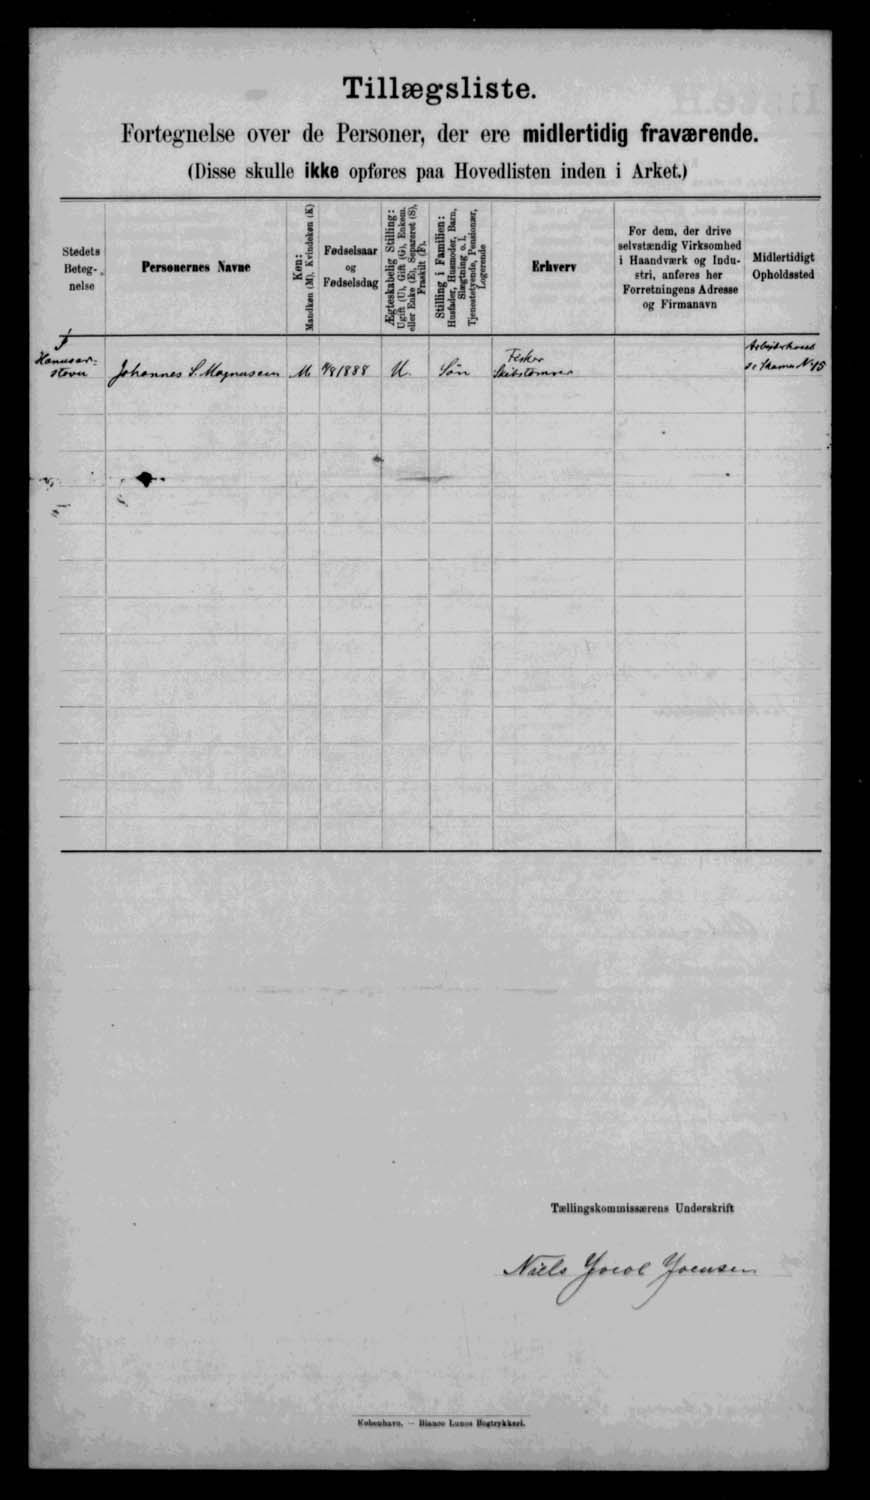 Tillægsliste.
Fortegnelse over de Personer, der ere midlertidig fraværende.
(Disse skulle ikke opføres paa Hovedlisten inden i Arket.)
Stedets
Beteg-
nelse
Personernes Navne
Køn:
Mandkøn (M). Kvindekøn (K)
Fødselsaar
og
Fødselsdag
Ægteskabelig Stilling:
Ugift (U), Gift (G), Enkem.
eller Enke (E), Separeret (S),
Fraskilt (F).
Stilling i Familien:
Husfader, Husmoder, Barn,
Slægtning o. l.
Tjenestetyende, Pensionær,
Logerende
Erhverv
For dem, der drive
selvstændig Virksomhed
i Haandværk og Indu-
stri, anføres her
Forretningens Adresse
og Firmanavn
Midlertidigt
Opholdssted
Hanusar-
stovu
Johannes S. Magnusen
M
1888
U.
Søn
Fisker
Skibstømrer
No 15
Tællingskommissærens Underskrift
Niels Joensen
København. — Bianco Lunos Bogtrykkeri.